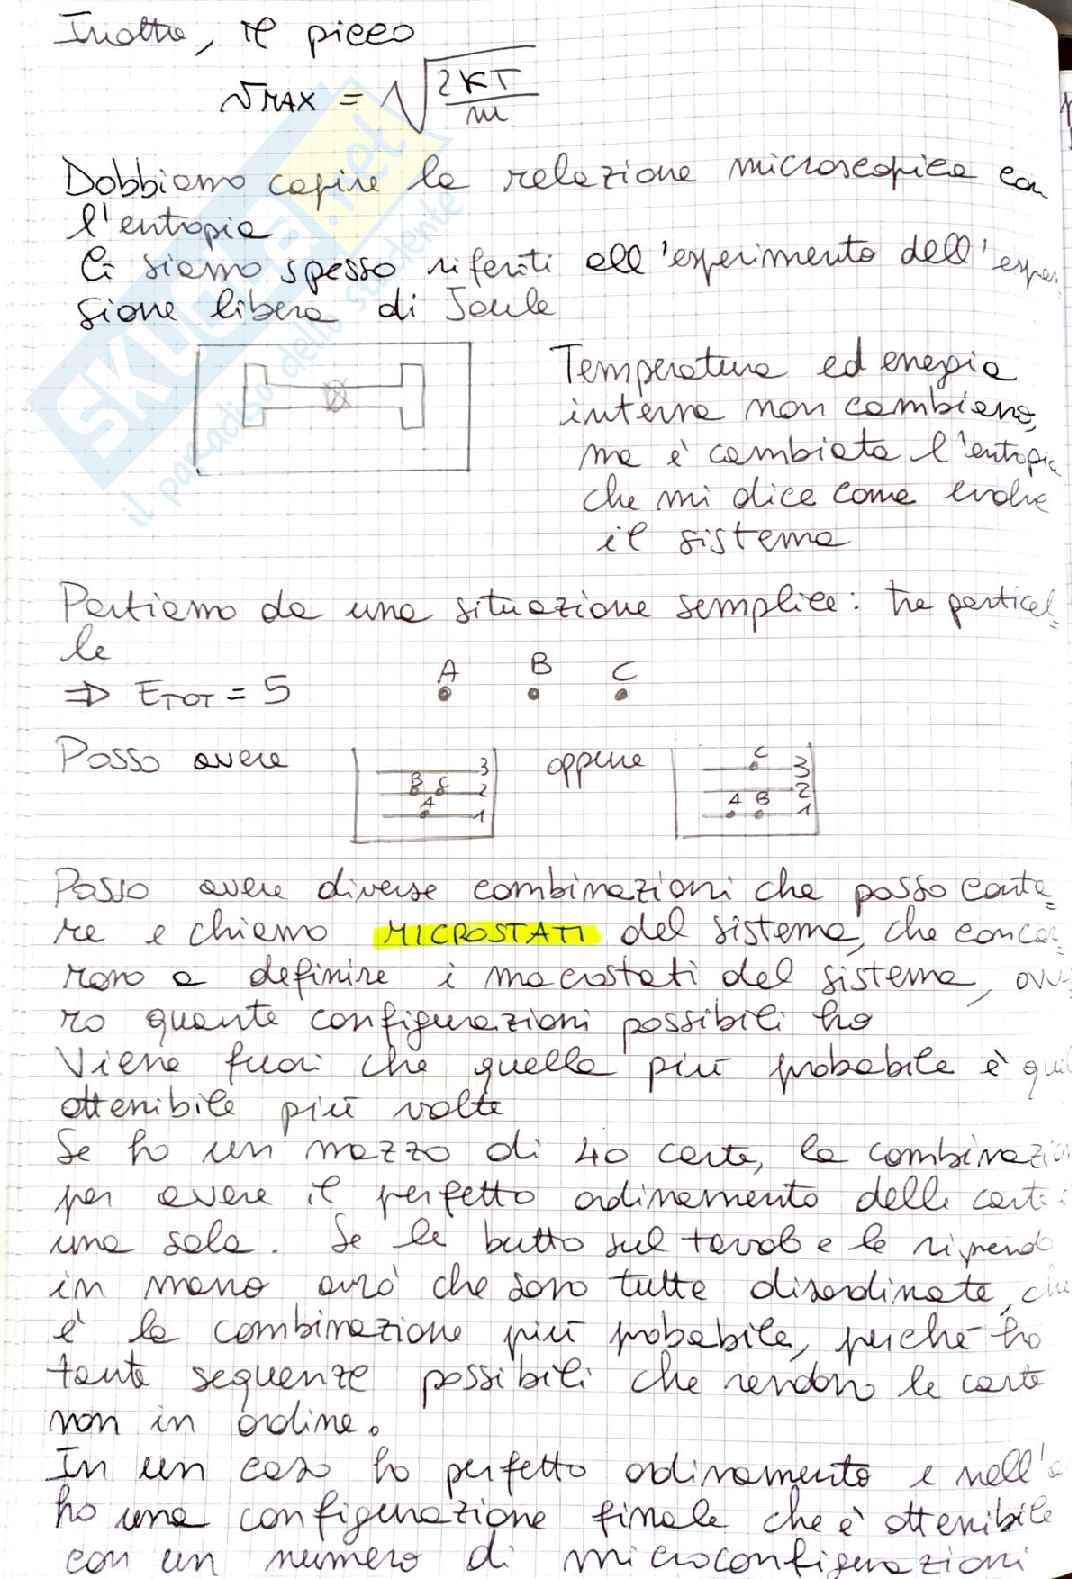 Inoltre, il picco
vMAX = √(2KT/m)
Dobbiamo capire la relazione microscopica con
l'entropia
Ci siamo spesso riferiti all'esperimento dell'espan-
sione libera di Joule
Temperatura ed energia
interna non cambiano,
ma è cambiata l'entropia
che mi dice come evolve
il sistema
Partiamo da una situazione semplice: tre particel=
le
A B C
⇒ ETOT = 5
Posso avere
3
B C 2
A 1
oppure
C 3
2
A B 1
Posso avere diverse combinazioni che posso conta=
re e chiamo MICROSTATI del sistema, che concor=
rono a definire i macrostati del sistema, ovve
ro quante configurazioni possibili ho
Viene fuori che quella più probabile è
ottenibile più volte
Se ho un mazzo di 40 carte, la combinazio
per avere il perfetto ordinamento delle carte è
una sola. Se le butto sul tavolo e le riprendo
in mano avrò che sono tutte disordinate, che
è la combinazione più probabile, perché ho
tante sequenze possibili che rendono le carte
non in ordine.
In un caso ho perfetto ordinamento e nell'a
ho una configurazione finale che è ottenibile
con un numero di microconfigurazioni
SKUOLA.net
il paradiso dello studente